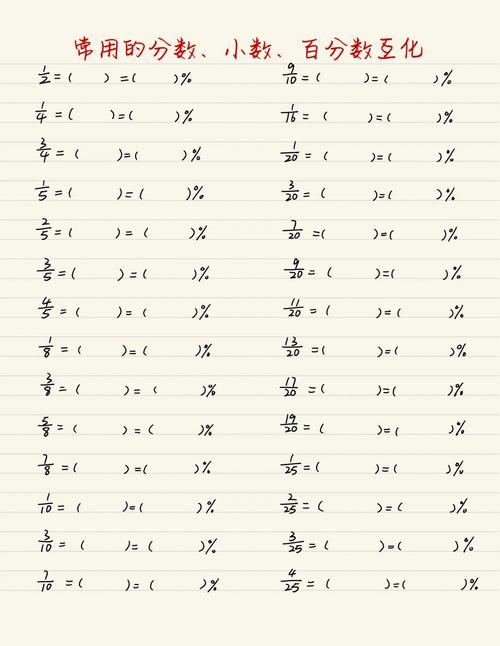 常用的分数、小数、百分数互化
1/2 = ( ) = ( )%
1/4 = ( ) = ( )%
3/4 = ( ) = ( )%
1/5 = ( ) = ( )%
2/5 = ( ) = ( )%
3/5 = ( ) = ( )%
4/5 = ( ) = ( )%
1/8 = ( ) = ( )%
3/8 = ( ) = ( )%
5/8 = ( ) = ( )%
7/8 = ( ) = ( )%
1/10 = ( ) = ( )%
3/10 = ( ) = ( )%
7/10 = ( ) = ( )%
9/10 = ( ) = ( )%
1/16 = ( ) = ( )%
1/20 = ( ) = ( )%
3/20 = ( ) = ( )%
7/20 = ( ) = ( )%
9/20 = ( ) = ( )%
11/20 = ( ) = ( )%
13/20 = ( ) = ( )%
17/20 = ( ) = ( )%
19/20 = ( ) = ( )%
1/25 = ( ) = ( )%
2/25 = ( ) = ( )%
3/25 = ( ) = ( )%
4/25 = ( ) = ( )%